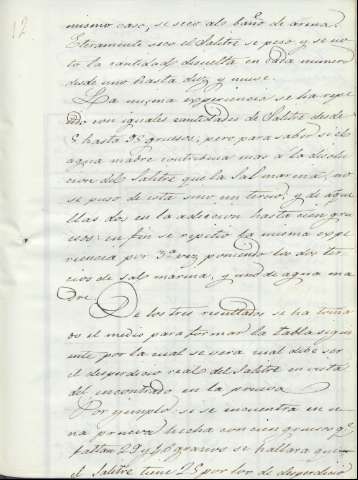 12
mismo caso, se seco al baño de arena
Eteramente seco el Salitre se peso y se no-
to la cantidad disuelta en cada numero
desde uno hasta diez y nueve.
La misma experiencia se ha repe
tido con iguales cantidades de Salitre desde
5 hasta 95 gruesos; pero para saber si el
agua madre contribuia mas a la disolu
cion del Salitre que la Sal marina, no
se puso de esta sino un tercio, y de aque
llas dos en la adicion hasta cien gru
esos: en fin se repitio la misma espe
riencia por 3.ª vez, poniendo los dos ter
cios de sal marina, y uno de agua ma
dre.
De los tres resultados se ha toma
do el medio para formar la tabla sigui
ente por la cual se vera cual debe ser
el desperdicio real del Salitre en vista
del encontrado en la prueva
Por ejemplo: si se encuentra en u
na prueva hecha con cien gruesos q.e
faltan 29 y granos se hallara que
el Salitre tiene 25 por 100 de desperdicio